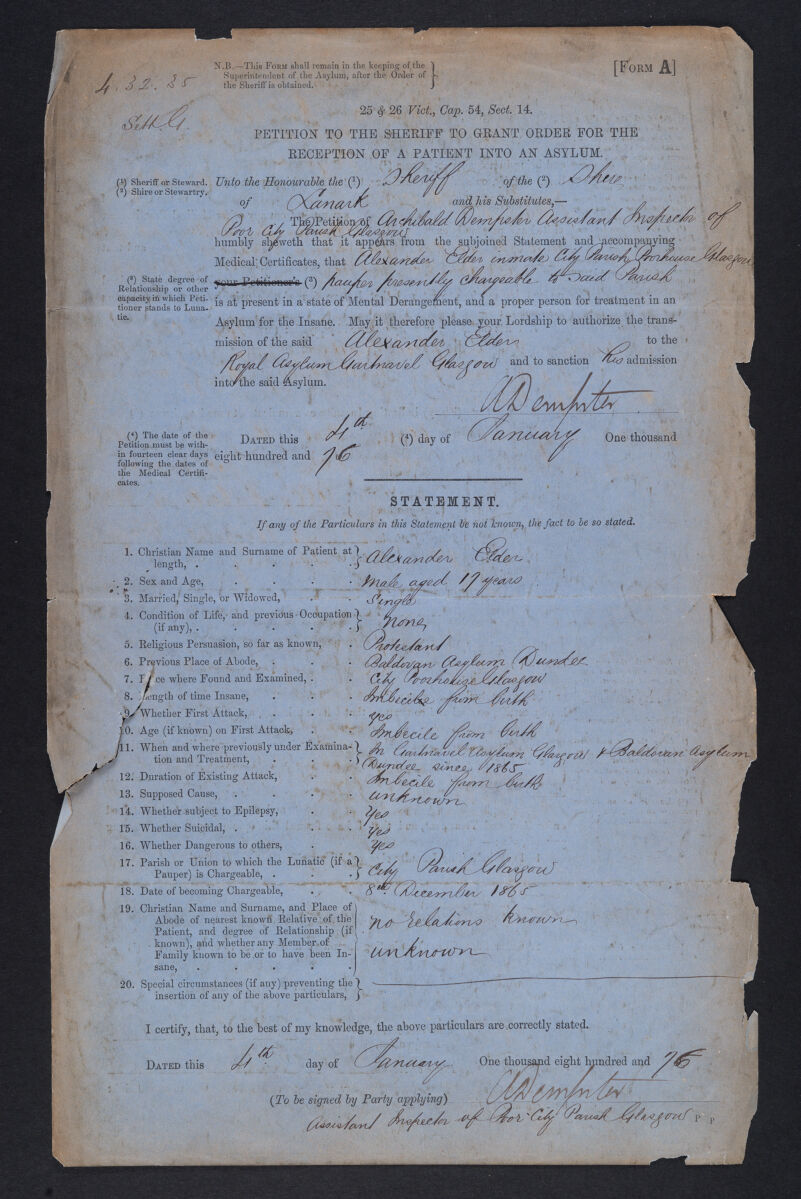 N.B.—This Form shall remain in the keeping of the
Superintendent of the Asylum, after the Order of
the Sheriff is obtained.
[Form A]
4.32.35
25 & 26 Vict., Cap. 54, Sect. 14.
PETITION TO THE SHERIFF TO GRANT ORDER FOR THE
RECEPTION OF A PATIENT INTO AN ASYLUM.
(1) Sheriff or Steward.
(2) Shire or Stewartry.
Unto the Honourable the (1) Sheriff of the (2) Shire
of Lanark and his Substitutes,—
The Petition of Archibald Dempster Assistant Inspector of
Poor City Parish Glasgow
humbly sheweth that it appears from the subjoined Statement and accompanying
Medical Certificates, that Alexander Elder inmate City Parish Poorhouse Glasgow
(3) State degree of
Relationship or other
capacity in which Peti-
tioner stands to Luna-
tic.
your Petitioner's (3) pauper presently chargeable to said Parish
is at present in a state of Mental Derangement, and a proper person for treatment in an
Asylum for the Insane. May it therefore please your Lordship to authorize the trans-
mission of the said Alexander Elder to the
Royal Asylum Gartnavel Glasgow and to sanction his admission
into the said Asylum.
ADempster
(4) The date of the
Petition must be with-
in fourteen clear days
following the dates of
the Medical Certifi-
cates.
Dated this 4th (4) day of January One thousand
eight hundred and 76
STATEMENT.
If any of the Particulars in this Statement be not known, the fact to be so stated.
1. Christian Name and Surname of Patient at
length, . . . . . Alexander Elder
2. Sex and Age, . . . . . male aged 17 years
3. Married, Single, or Widowed, . . Single
4. Condition of Life, and previous Occupation
(if any), . . . . . none
5. Religious Persuasion, so far as known, . Protestant
6. Previous Place of Abode, . . . Baldovan Asylum Dundee
7. Place where Found and Examined, . . City Poorhouse Glasgow
8. Length of time Insane, . . . Imbecile from birth
9. Whether First Attack, . . . yes
10. Age (if known) on First Attack, . . Imbecile from birth
11. When and where previously under Examina-
tion and Treatment, . . . In Gartnavel Asylum Glasgow & Baldovan Asylum
Dundee since 1865
12. Duration of Existing Attack, . . Imbecile from birth
13. Supposed Cause, . . . . unknown
14. Whether subject to Epilepsy, . . Yes
15. Whether Suicidal, . . . . Yes
16. Whether Dangerous to others, . . Yes
17. Parish or Union to which the Lunatic (if a
Pauper) is Chargeable, . . . City Parish Glasgow
18. Date of becoming Chargeable, . . 8th December 1865
19. Christian Name and Surname, and Place of
Abode of nearest known Relative of the
Patient, and degree of Relationship (if
known), and whether any Member of
Family known to be or to have been In-
sane, . . . . .
no relations known
unknown
20. Special circumstances (if any) preventing the
insertion of any of the above particulars,
I certify, that, to the best of my knowledge, the above particulars are correctly stated.
Dated this 4th day of January One thousand eight hundred and 76
(To be signed by Party applying) ADempster
Assistant Inspector of Poor City Parish Glasgow P P